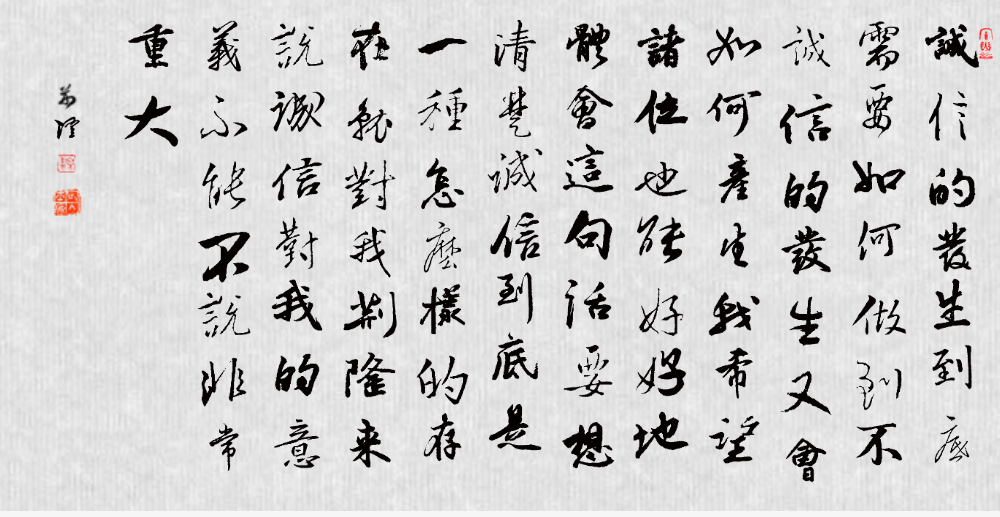 誠信的發生到底
需要如何做到不
誠信的發生又會
如何產生我希望
諸位也能好好地
體會這句話要想
清楚誠信到底是
一種怎麼樣的存
在就對我荊隆来
説誠信對我的意
義不能不説非常
重大